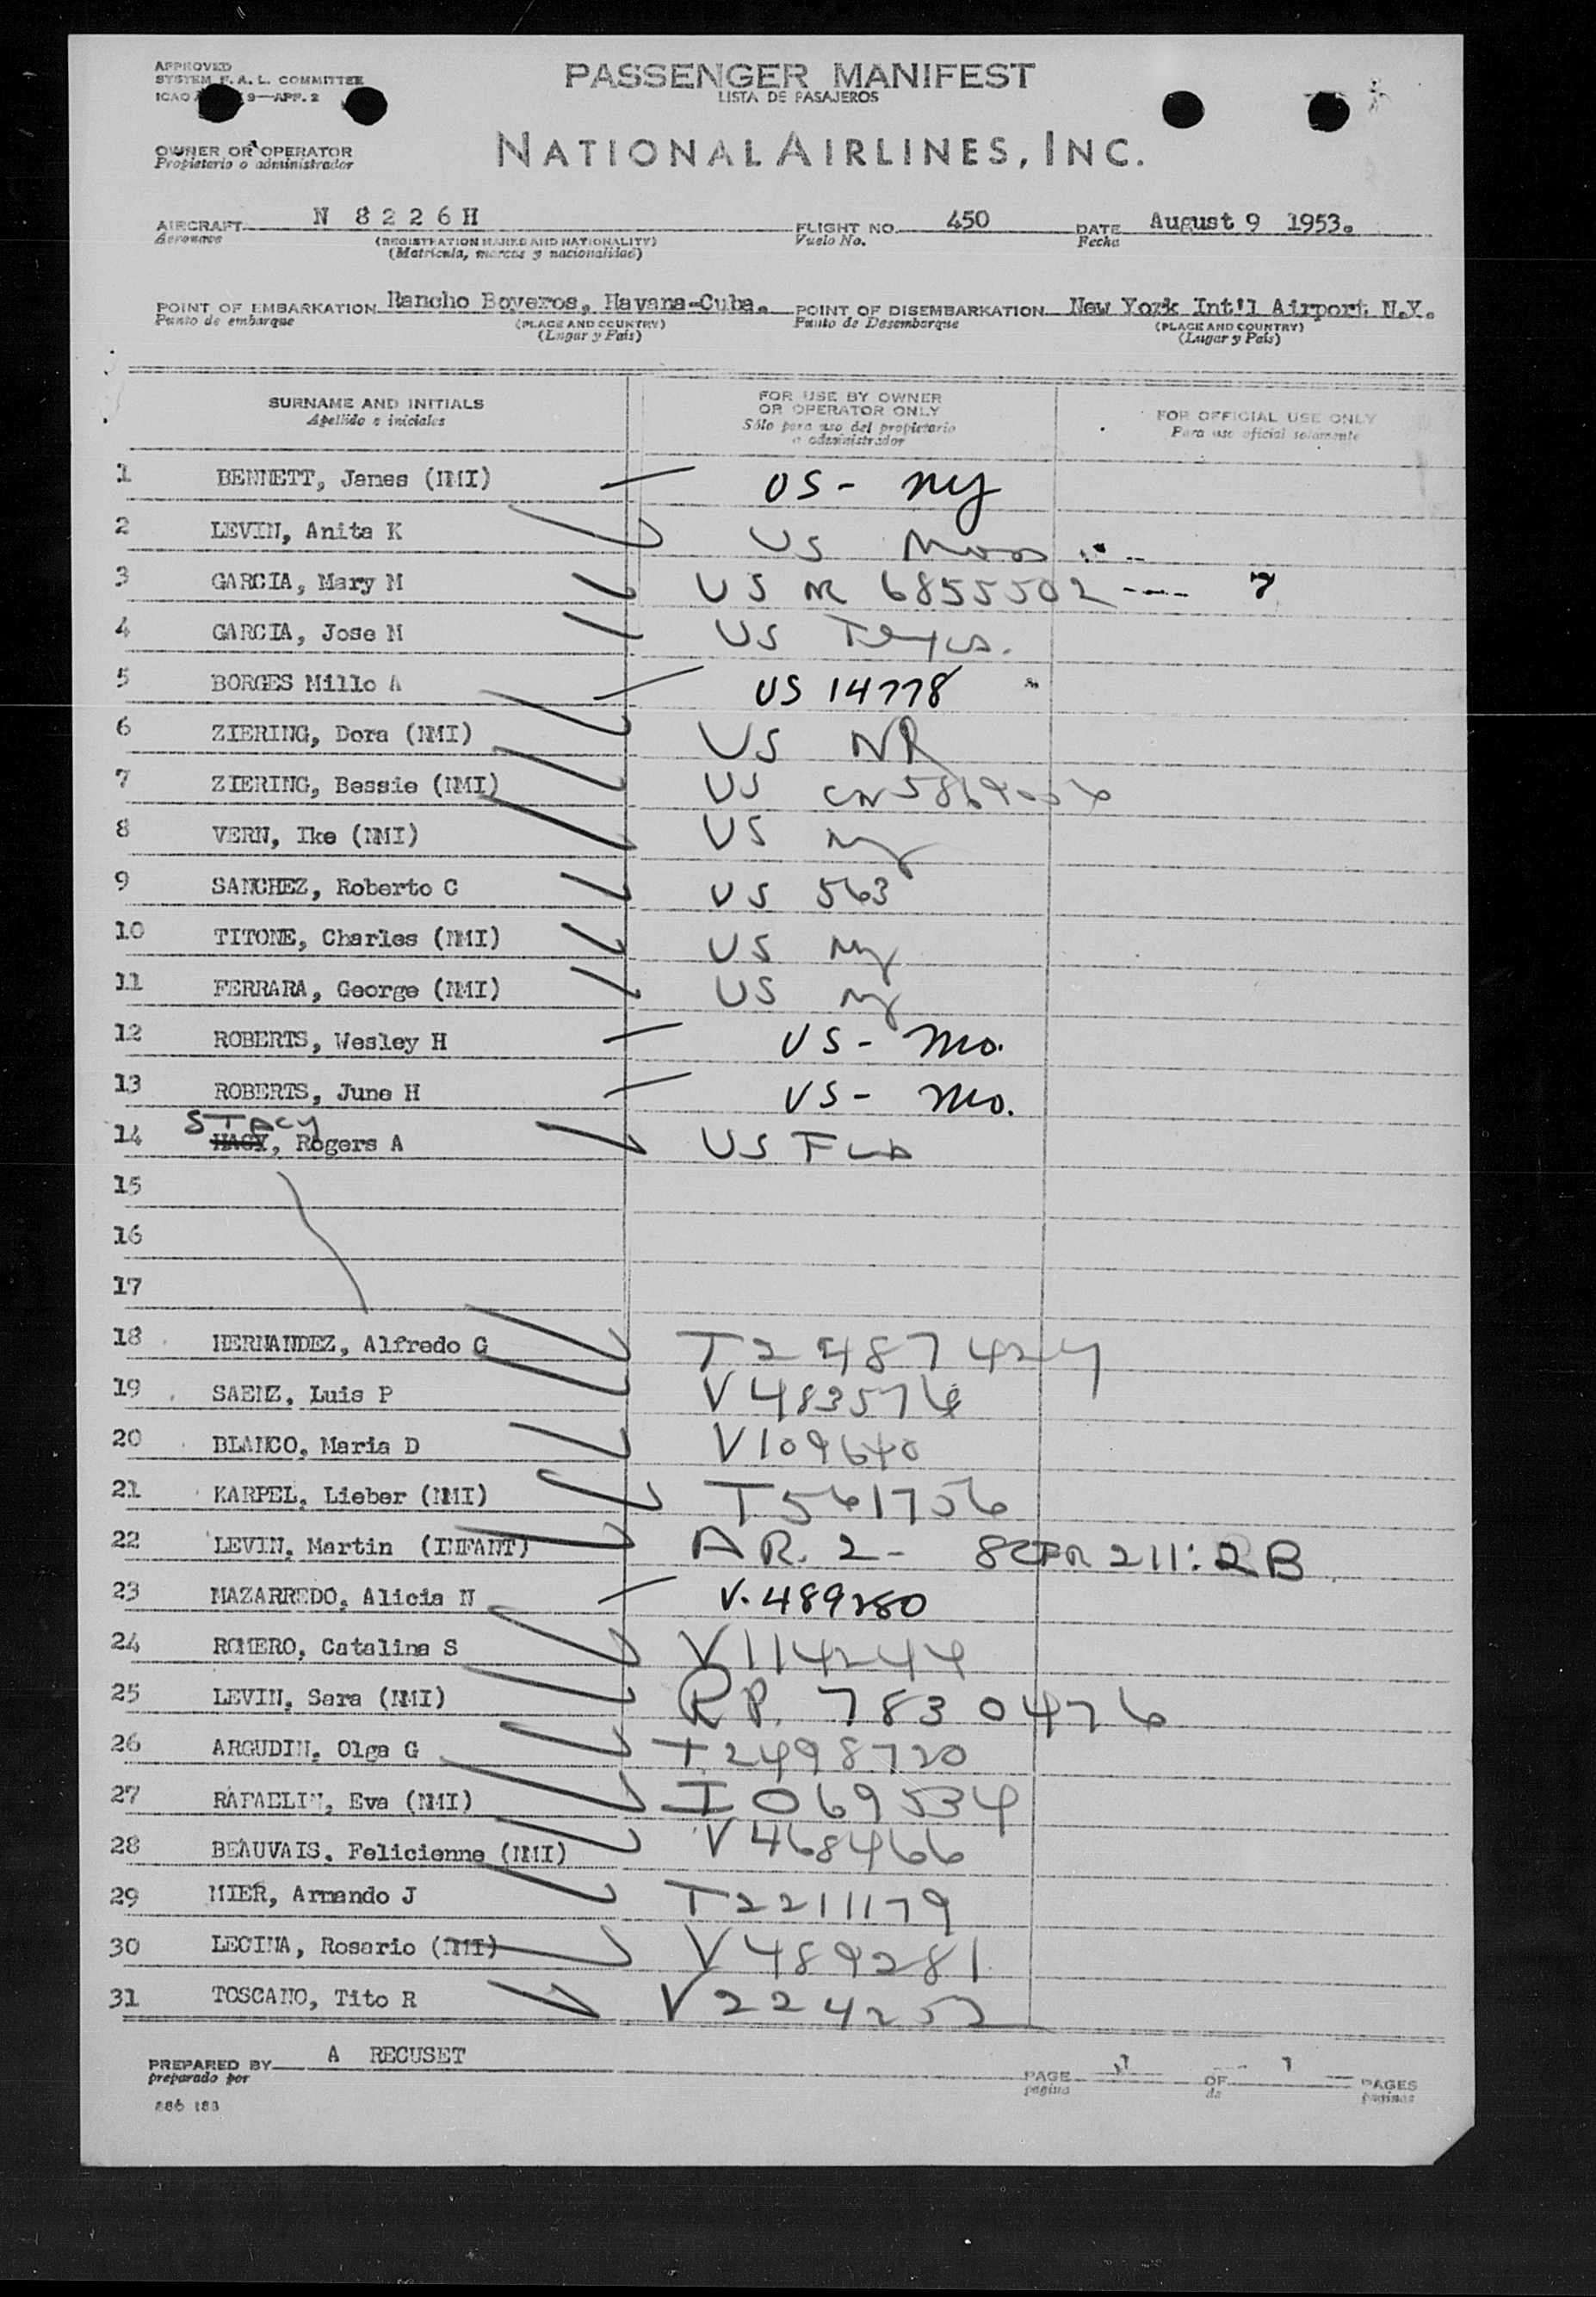 APPROVED
SYSTEM F. A. L. COMMITTEE
ICAO 9—APP. 2
PASSENGER MANIFEST
LISTA DE PASAJEROS
OWNER OR OPERATOR
Propietario o administrador
NATIONAL AIRLINES, INC.
AIRCRAFT N 8226H FLIGHT NO. 450 DATE August 9 1953.
Aeronave (REGISTRATION MARKS AND NATIONALITY) Vuelo No. Fecha
(Matricula, marcas y nacionalidad)
POINT OF EMBARKATION Rancho Boyeros, Havana-Cuba. POINT OF DISEMBARKATION New York Int'l Airport N.Y.
Punto de embarque (PLACE AND COUNTRY) Punto de Desembarque (PLACE AND COUNTRY)
(Lugar y Pais) (Lugar y Pais)
SURNAME AND INITIALS
Apellido e iniciales
FOR USE BY OWNER
OR OPERATOR ONLY
Sólo para uso del propietario
o administrador
FOR OFFICIAL USE ONLY
Para uso oficial solamente
1 BENNETT, James (NMI) US - NY
2 LEVIN, Anita K US Mass
3 GARCIA, Mary M US NR 6855502 ---- 7
4 GARCIA, Jose M US Texas.
5 BORGES Millo A US 14778
6 ZIERING, Dora (NMI) US NR
7 ZIERING, Bessie (NMI) US CN
8 VERN, Ike (NMI) US NY
9 SANCHEZ, Roberto C US 563
10 TITONE, Charles (NMI) US NY
11 FERRARA, George (NMI) US NY
12 ROBERTS, Wesley H US - Mo.
13 ROBERTS, June H US - Mo.
STACY
14 HAGY, Rogers A US FLA
15
16
17
18 HERNANDEZ, Alfredo G T2487424
19 SAENZ, Luis P V483576
20 BLANCO, Maria D V109640
21 KARPEL, Lieber (NMI) T561756
22 LEVIN, Martin (INFANT) AR. 2 - 8CFR 211:2B
23 MAZARREDO, Alicia N V. 489280
24 ROMERO, Catalina S V114244
25 LEVIN, Sara (NMI) RP. 7830476
26 ARGUDIN, Olga G T2498720
27 RAFAELIN, Eva (NMI) I 069534
28 BEAUVAIS, Felicienne (NMI) V468466
29 MIER, Armando J T2211179
30 LECINA, Rosario (NMI) V489281
31 TOSCANO, Tito R V224252
PREPARED BY A RECUSET PAGE 1 OF 1 PAGES
preparado por pagina de paginas
886 183